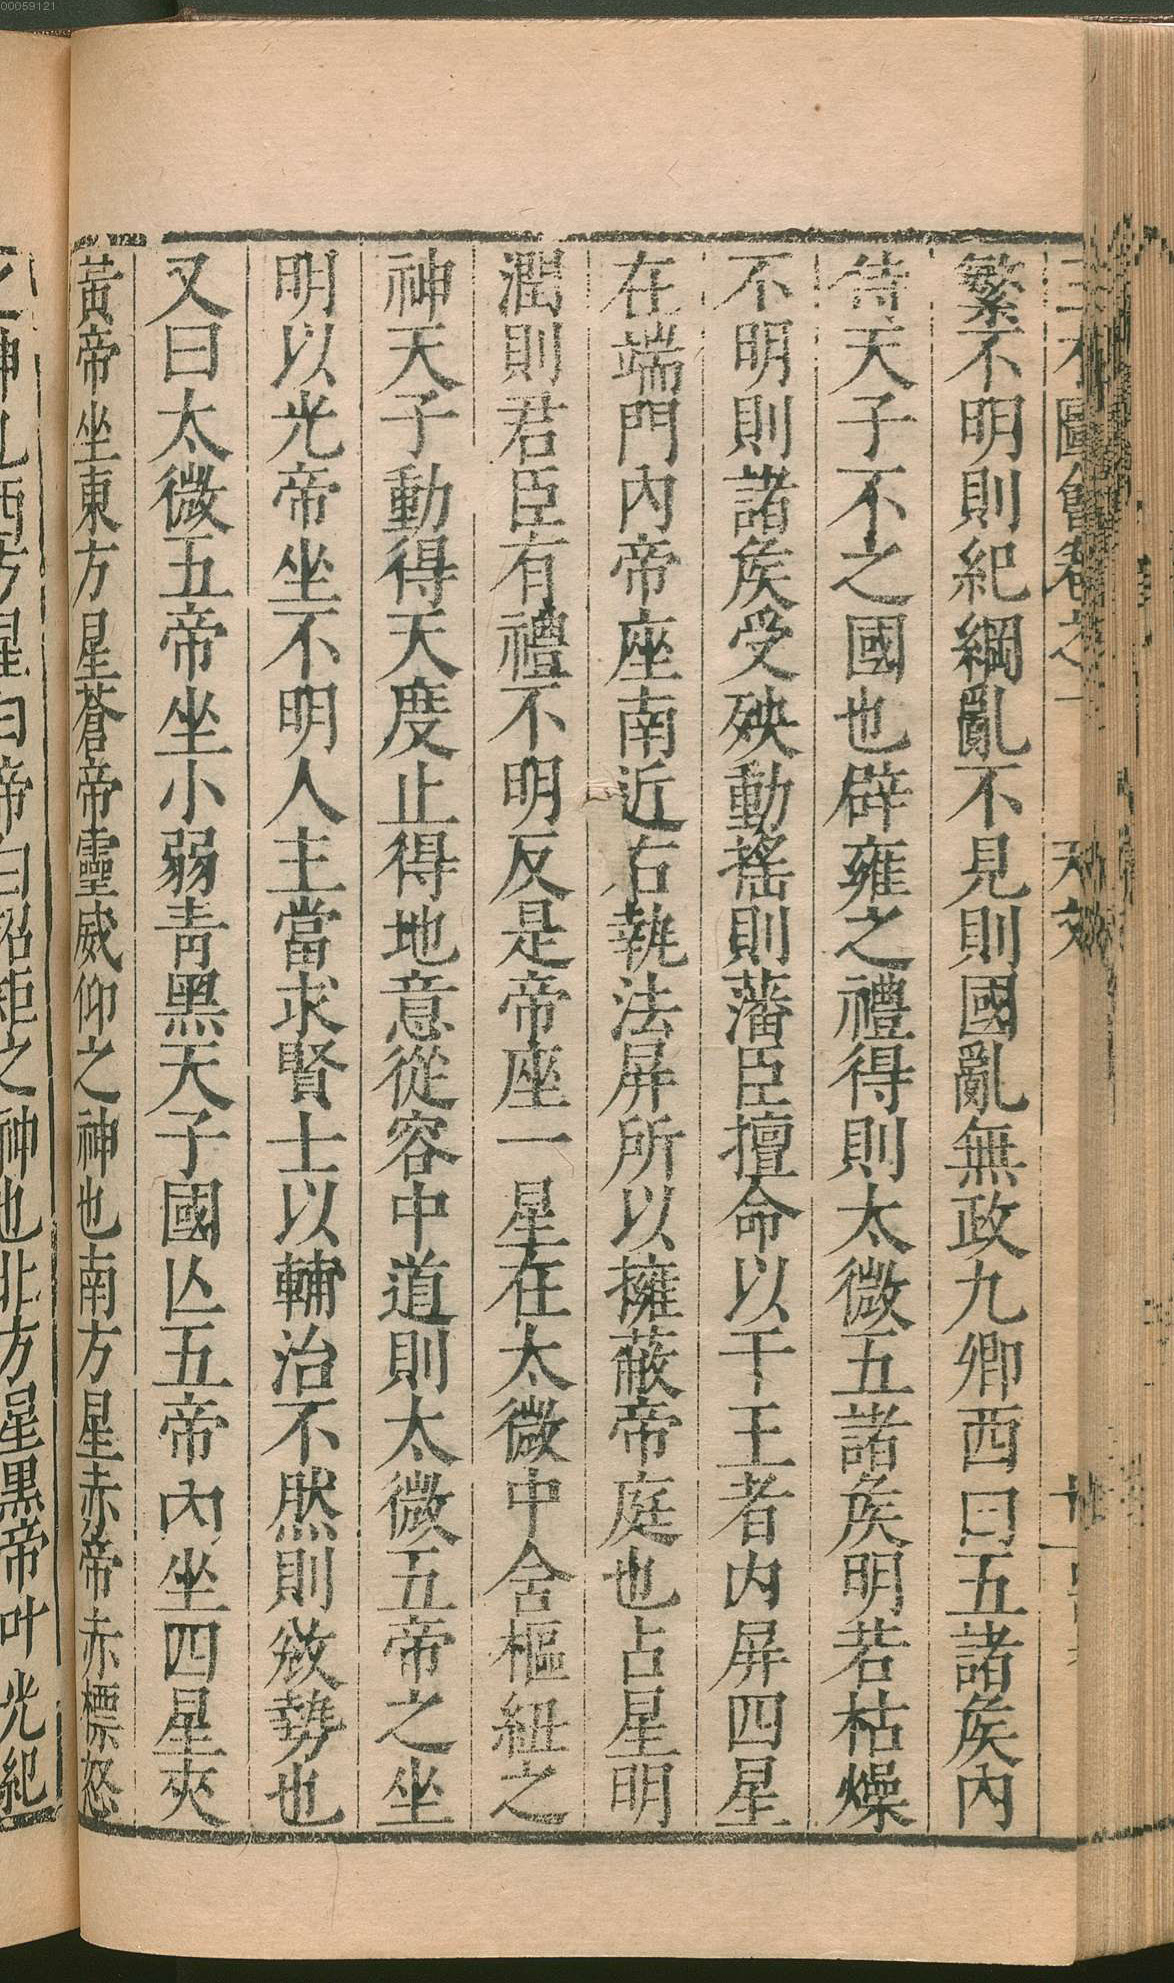 三才圖會卷之一 天文
繁不明則紀綱亂不見則國亂無政九卿西曰五諸矦內
侍天子不之國也辟雍之禮得則太微五諸矦明若枯燥
不明則諸矦受殃動搖則藩臣擅命以干王者内屏四星
在端門內帝座南近右執法屏所以擁蔽帝庭也占星明
潤則君臣有禮不明反是帝座一星在太微中含樞紐之
神天子動得天度止得地意從容中道則太微五帝之坐
明以光帝坐不明人主當求賢士以輔治不然則㪉勢也
又曰太微五帝坐小弱青黑天子國亾五帝內坐四星夾
黃帝坐東方星蒼帝靈威仰之神也南方星赤帝赤熛怒
之神也西方星白帝白招距之神也北方星黑帝叶光紀
00059121